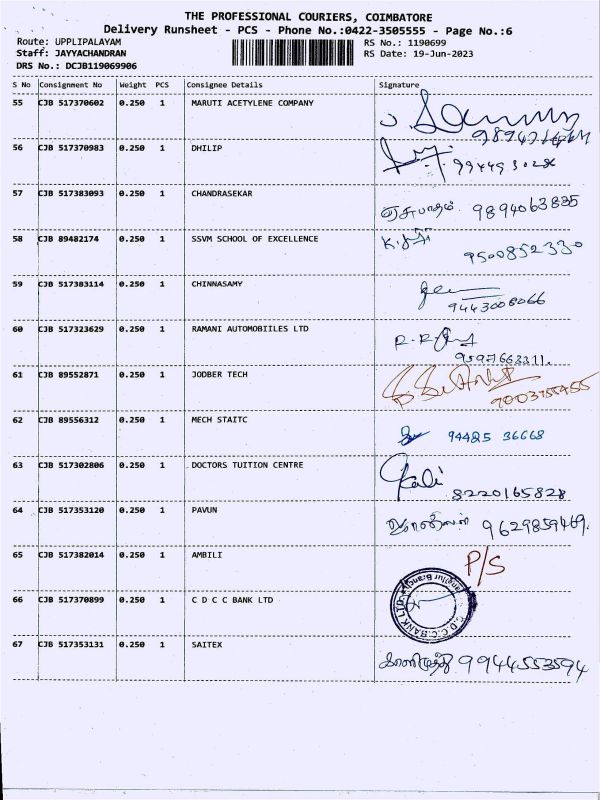 THE PROFESSIONAL COURIERS, COIMBATORE
Delivery Runsheet - PCS - Phone No.:0422-3505555 - Page No.:6
Route: UPPLIPALAYAM RS No.: 1190699
Staff: JAYYACHANDRAN RS Date: 19-Jun-2023
DRS No.: DCJB119069906
S No Consignment No Weight PCS Consignee Details Signature
55 CJB 517370602 0.250 1 MARUTI ACETYLENE COMPANY
56 CJB 517370983 0.250 1 DHILIP
57 CJB 517383093 0.250 1 CHANDRASEKAR 9894063885
58 CJB 89482174 0.250 1 SSVM SCHOOL OF EXCELLENCE
9500852330
59 CJB 517383114 0.250 1 CHINNASAMY
9443008066
60 CJB 517323629 0.250 1 RAMANI AUTOMOBIILES LTD
9597663311.
61 CJB 89552871 0.250 1 JODBER TECH
62 CJB 89556312 0.250 1 MECH STAITC
94425 36668
63 CJB 517302806 0.250 1 DOCTORS TUITION CENTRE
Kali 8220165828
64 CJB 517353120 0.250 1 PAVUN
9629859469.
65 CJB 517382014 0.250 1 AMBILI P/S
66 CJB 517370899 0.250 1 C D C C BANK LTD
C.D.C.C.BANK LTD
67 CJB 517353131 0.250 1 SAITEX
9944553594